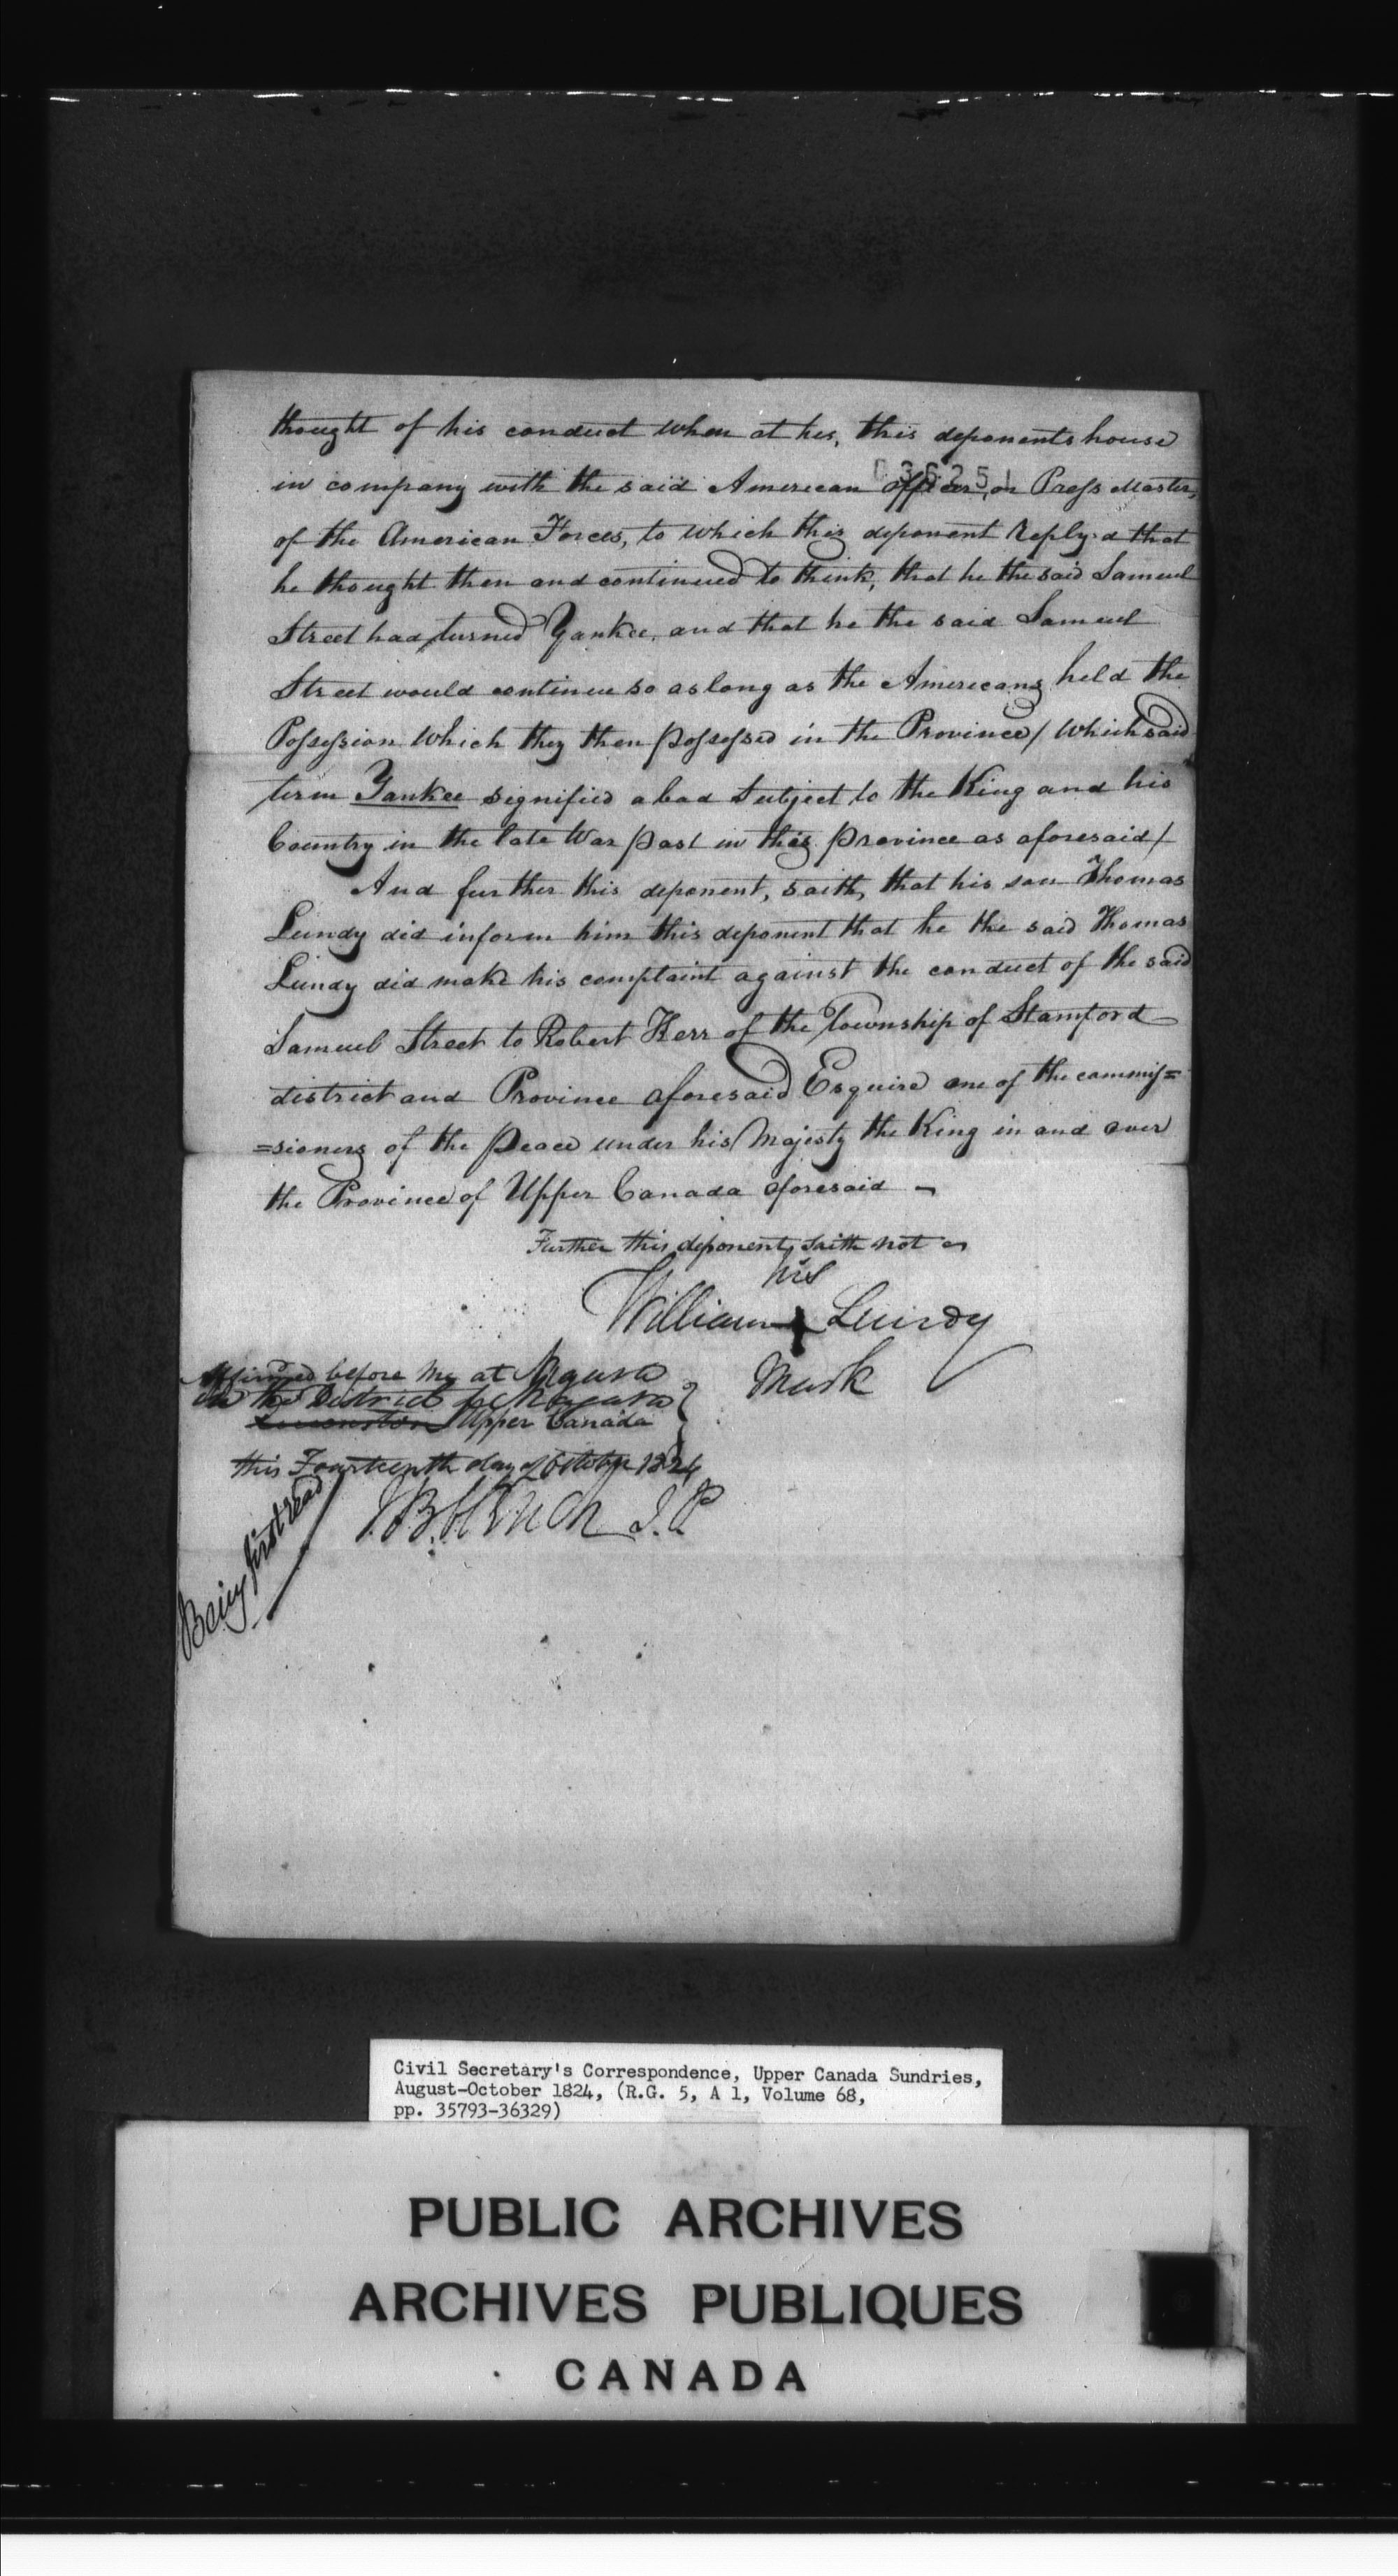 thought of his conduct when at his, this deponents house
036251
in company with the said American officer, or Press Master,
of the American Forces, to which this deponent reply'd that
he thought then and continued to think, that he the said Samuel
Street had turned Yankee, and that he the said Samuel
Street would continue so as long as the Americans held the
Possession which they then possessed in the Province / which said
term Yankee signified a bad Subject to the King and his
Country in the late War past in this province as aforesaid /
And further this deponent, saith, that his son Thomas
Lundy did inform him this deponent that he the said Thomas
Lundy did make his complaint against the conduct of the said
Samuel Street to Robert Kerr of the Township of Stamford
district and Province aforesaid Esquire one of the commis=
=sioners of the peace under his Majesty the King in and over
the Province of Upper Canada aforesaid —
Further this deponent, saith not
his
William + Lundy
Mark
Affirmed before me at Niagara
in the District of Niagara
Queenston Upper Canada
this Fourteenth day of October 1824
Being first read
J. P.
Civil Secretary's Correspondence, Upper Canada Sundries,
August-October 1824, (R.G. 5, A 1, Volume 68,
pp. 35793-36329)
PUBLIC ARCHIVES
ARCHIVES PUBLIQUES
CANADA